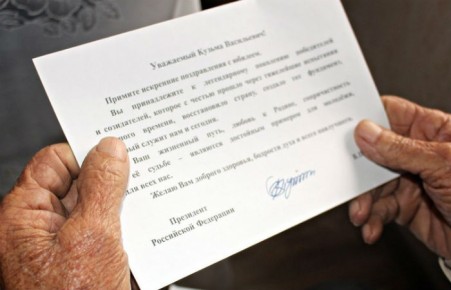 Уважаемый Кузьма Васильевич!
Примите искренние поздравления с юбилеем.
Вы принадлежите к легендарному поколению победителей
и созидателей, которое с честью прошло через тяжелейшие испытания
времени, восстановило страну, создало тот фундамент,
служит нам и сегодня.
Ваш жизненный путь, любовь к Родине, сопричастность
её судьбе – являются достойным примером для молодёжи,
для всех нас.
Желаю Вам доброго здоровья, бодрости духа и всего наилучшего.
Президент
Российской Федерации
В.